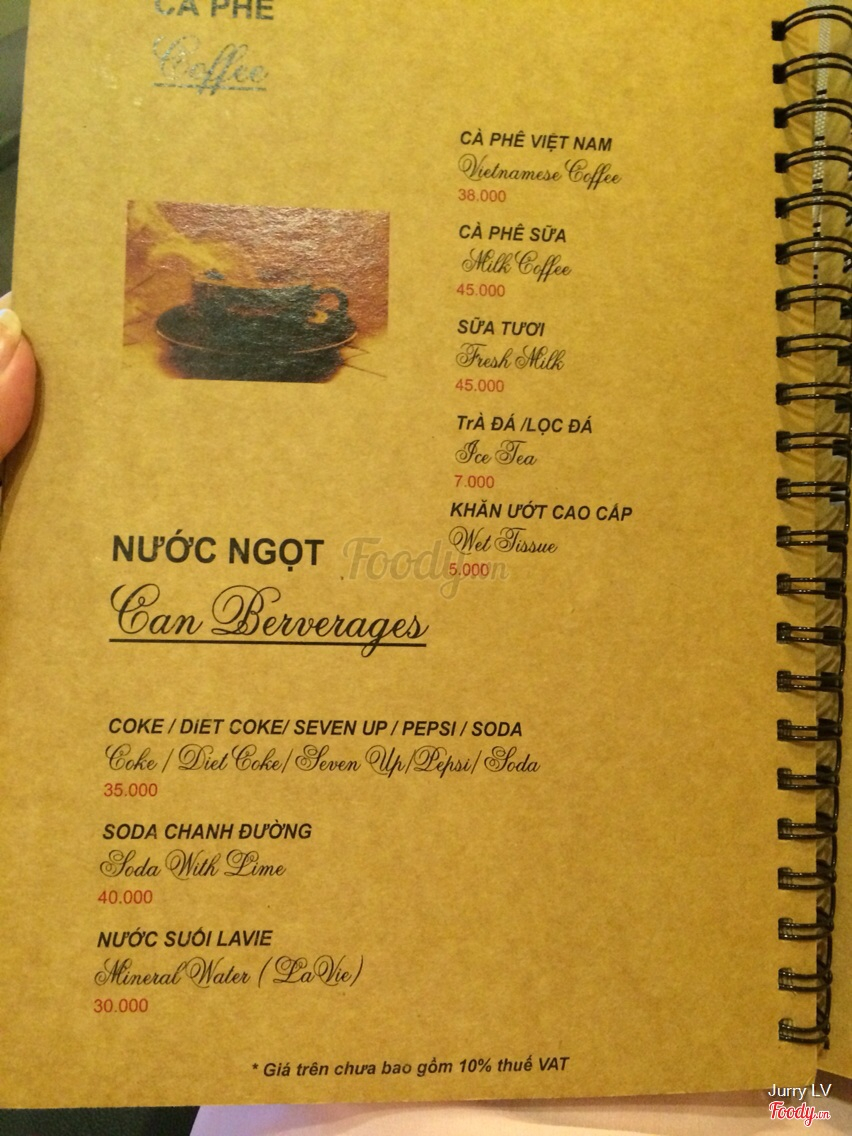 CÀ PHÊ
Coffee
CÀ PHÊ VIỆT NAM
Vietnamese Coffee
38.000
CÀ PHÊ SỮA
Milk Coffee
45.000
SỮA TƯƠI
Fresh Milk
45.000
TrÀ ĐÁ /LỌC ĐÁ
Ice Tea
7.000
KHĂN ƯỚT CAO CẤP
Wet Tissue
5.000
NƯỚC NGỌT
Can Berverages
Foody.vn
COKE / DiET COKE/ SEVEN UP / PEPSI / SODA
Coke / Diet Coke/ Seven Up/Pepsi/ Soda
35.000
SODA CHANH ĐƯỜNG
Soda With Lime
40.000
NƯỚC SUỐI LAVIE
Mineral Water ( La Vie)
30.000
* Giá trên chưa bao gồm 10% thuế VAT
Jurry LV
Foody.vn